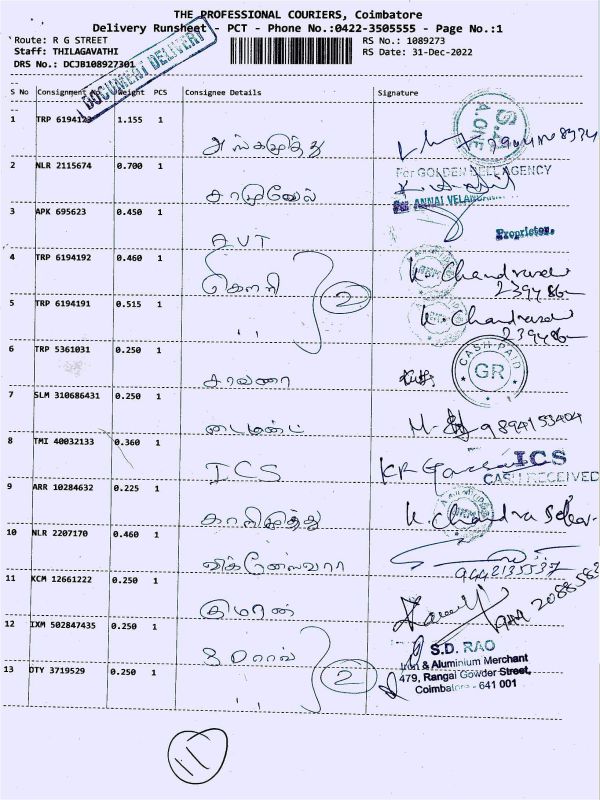 THE PROFESSIONAL COURIERS, Coimbatore
Delivery Runsheet - PCT - Phone No.:0422-3505555 - Page No.:1
Route: R G STREET RS No.: 1089273
Staff: THILAGAVATHI RS Date: 31-Dec-2022
DRS No.: DCJB108927301
DOCUMENT DELIVERY
S No Consignment No Weight PCS Consignee Details Signature
S.A.
A.ONE
1 TRP 6194123 1.155 1 அங்கமுத்து
For GOLDEN BELL AGENCY
2 NLR 2115674 0.700 1 சாமுவேல்
For ANNAI VELANKANNI
3 APK 695623 0.450 1 AVT
Proprietor.
4 TRP 6194192 0.460 1 கௌரி K. Chandrasek
2 239486
5 TRP 6194191 0.515 1 " K. Chandrasek
239486
6 TRP 5361031 0.250 1 சரவணா
CASH PAID
GR
7 SLM 310686431 0.250 1 டைமண்ட் 9894153404
8 TMI 40032133 0.360 1 ICS
ICS
CASH RECEIVED
9 ARR 10284632 0.225 1 காளிமுத்து K. Chandra Sekar
10 NLR 2207170 0.460 1 விக்னேஸ்வரா
9442135537
11 KCM 12661222 0.250 1 குமரன்
12 IXM 502847435 0.250 1 S.D ராவ்
S.D. RAO
Iron & Aluminium Merchant
13 DTY 3719529 0.250 1 2 479, Rangai Gowder Street,
Coimbatore - 641 001
11